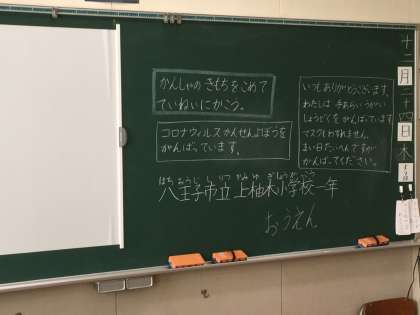 かんしゃの きもちをこめて
ていねいにかこう。
コロナウィルスかんせんよぼうを
がんばっています。
いつもありがとうございます。
わたしは 手あらい うがい
しょうどくを がんばっています
マスクもわすれません。
まい日たいへんですが
がんばってください。
はちおうじしりつかみゆぎしょうがっこう
八王子市立 上柚木小学校一年
おうえん
十二月二十四日木